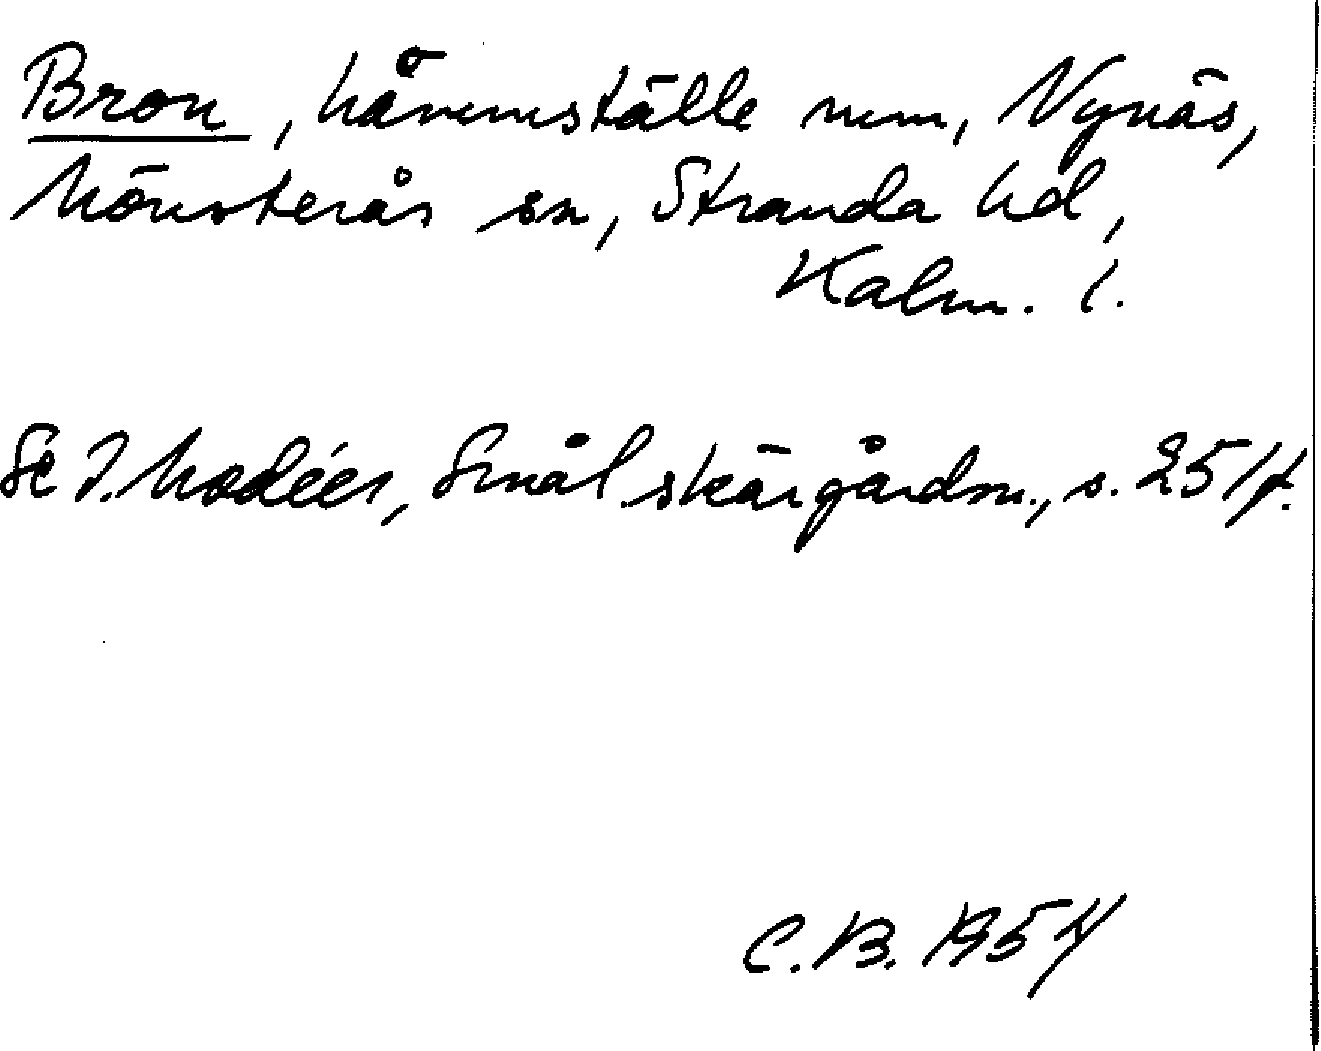 Bron, håvemställe num, Nynäs,
Mönsterås sn, Stranda hd,
Kalm. l.
Se I. Modéer, Smål skärgårdsn., s. 25 f.
C.B. 1954